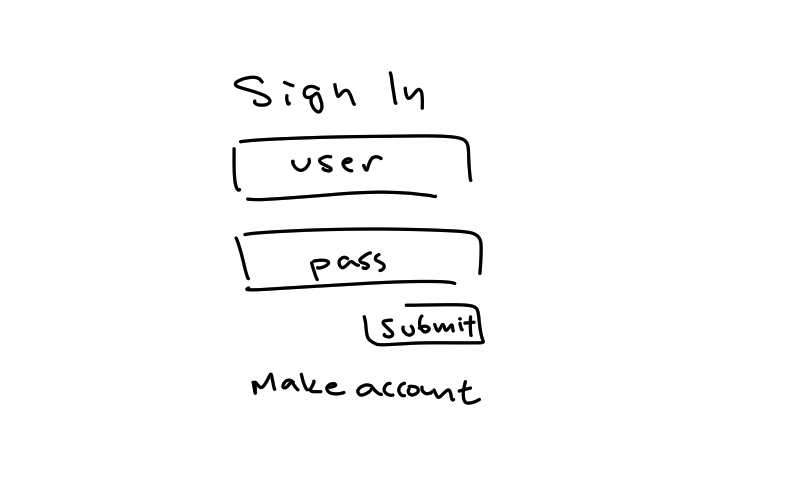 Sign In
user
pass
submit
Make account